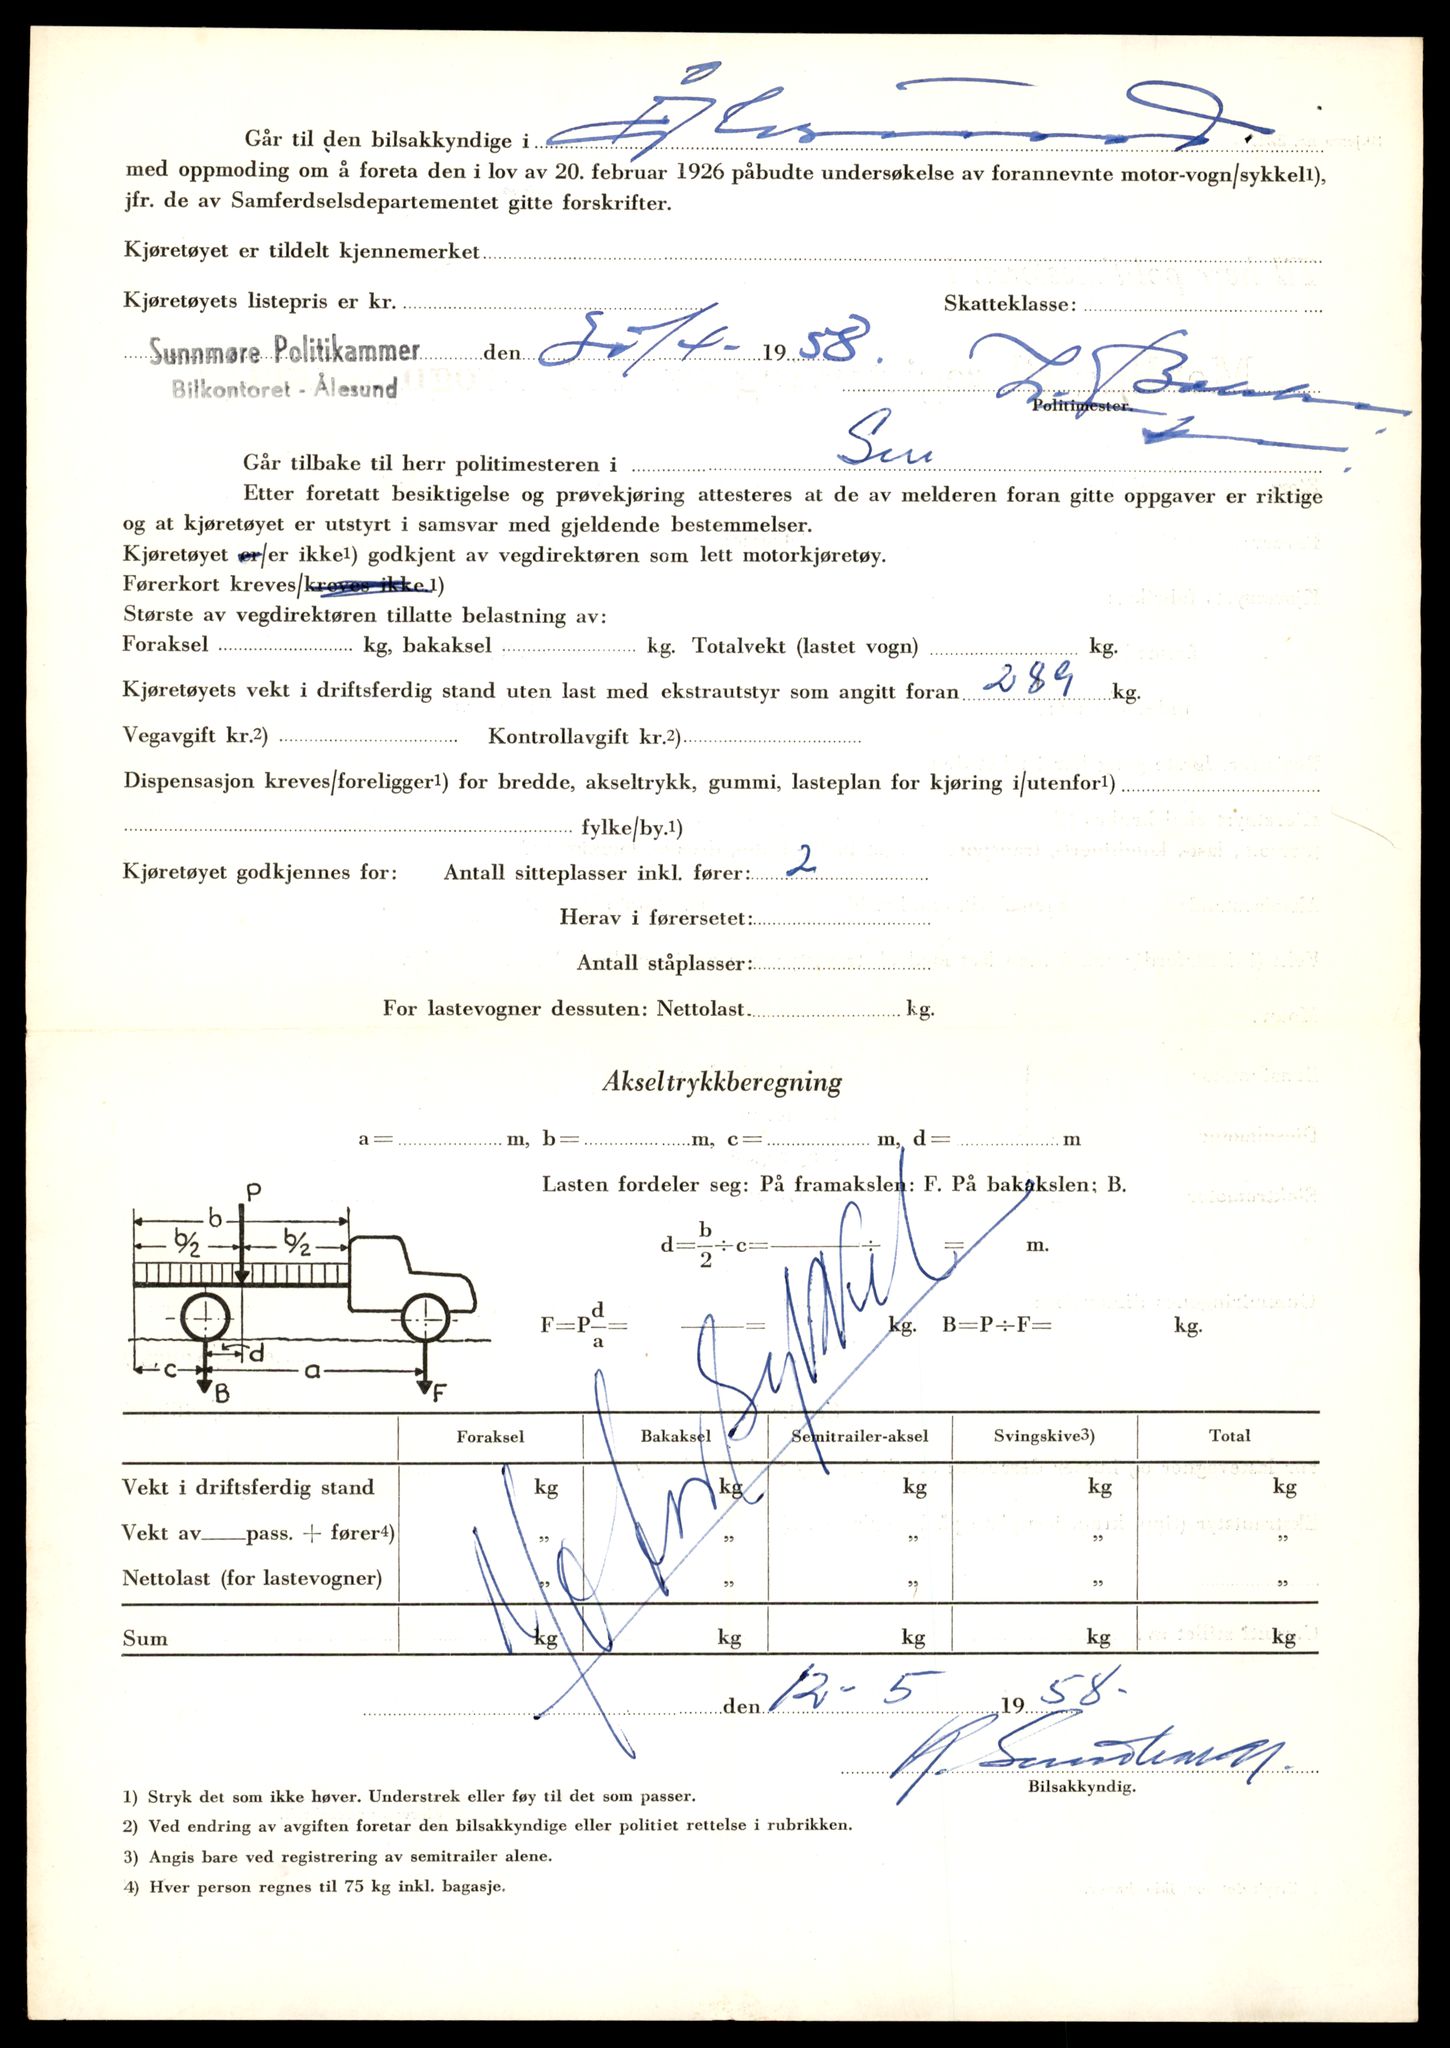 Går til den bilsakkyndige i Ålesund
med oppmoding om å foreta den i lov av 20. februar 1926 påbudte undersøkelse av forannevnte motor-vogn/sykkel1),
jfr. de av Samferdselsdepartementet gitte forskrifter.
Kjøretøyet er tildelt kjennemerket
Kjøretøyets listepris er kr. Skatteklasse:
Sunnmøre Politikammer den /4- 1958.
Bilkontoret - Ålesund
Politimester.
Går tilbake til herr politimesteren i
Etter foretatt besiktigelse og prøvekjøring attesteres at de av melderen foran gitte oppgaver er riktige
og at kjøretøyet er utstyrt i samsvar med gjeldende bestemmelser.
Kjøretøyet er/er ikke1) godkjent av vegdirektøren som lett motorkjøretøy.
Førerkort kreves/kreves ikke.1)
Største av vegdirektøren tillatte belastning av:
Foraksel kg, bakaksel kg. Totalvekt (lastet vogn) kg.
Kjøretøyets vekt i driftsferdig stand uten last med ekstrautstyr som angitt foran 289 kg.
Vegavgift kr.2) Kontrollavgift kr.2)
Dispensasjon kreves/foreligger1) for bredde, akseltrykk, gummi, lasteplan for kjøring i/utenfor1)
fylke/by.1)
Kjøretøyet godkjennes for: Antall sitteplasser inkl. fører: 2
Herav i førersetet:
Antall ståplasser:
For lastevogner dessuten: Nettolast kg.
Akseltrykkberegning
a= m, b= m, c= m, d= m
Lasten fordeler seg: På framakslen: F. På bakakslen; B.
P
b
b/2 b/2
d=b/2÷c= ÷ = m.
F=P d/a= = kg. B=P÷F= kg.
c d a
B F
Motorsykkel
Foraksel Bakaksel Semitrailer-aksel Svingskive3) Total
Vekt i driftsferdig stand kg kg kg kg kg
Vekt av pass. + fører4) „ „ „ „ „
Nettolast (for lastevogner) „ „ „ „ „
Sum kg kg kg kg kg
den 12-5 1958-
Bilsakkyndig.
1) Stryk det som ikke høver. Understrek eller føy til det som passer.
2) Ved endring av avgiften foretar den bilsakkyndige eller politiet rettelse i rubrikken.
3) Angis bare ved registrering av semitrailer alene.
4) Hver person regnes til 75 kg inkl. bagasje.